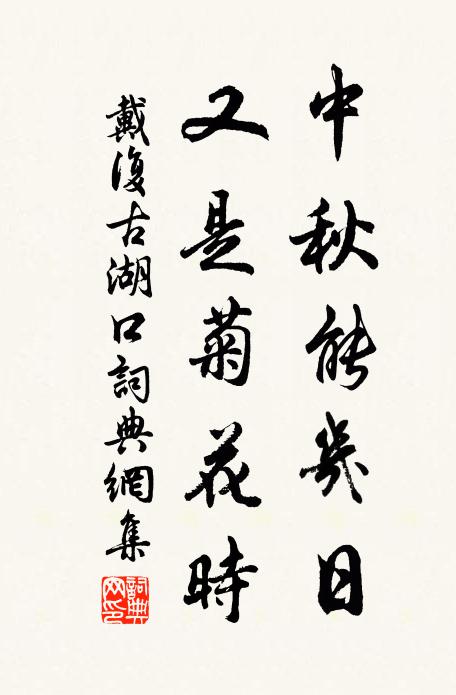 中秋能幾日
又是菊花時
戴復古湖口詞典網集
詞典網印